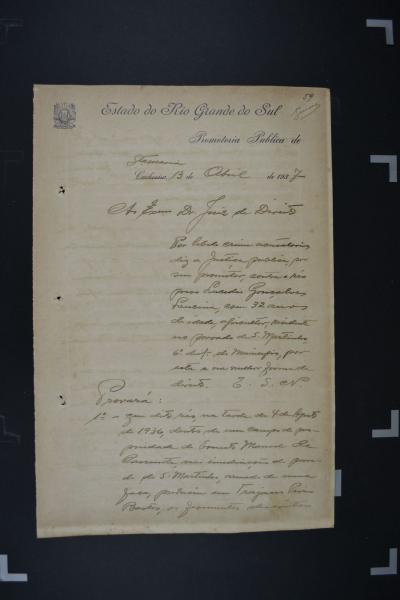 59
Estado do Rio Grande do Sul
Promotoria Publica de
Cachoeira, 13 de Abril de 1937
Ao Exmo Dr. Juiz de Direito
Por libelo crime accusatorio,
diz a Justiça publica, por
seu promotor, contra o réo
preso Gonçalves
com 32 annos
de idade, residente
no povoado de S. Martinho,
6º deste Municipio, por
esta e na melhor forma de
direito. E. S. N.
Provará:
1º - que dito réo, na tarde de 4 de Agosto
de 1936, dentro de um campo de pro-
priedade de Ernesto Manoel
nas immediações do povoa-
do de S. Martinho, armado de uma
faca, produziu em Trajano
Bastos, os ferimentos descriptos